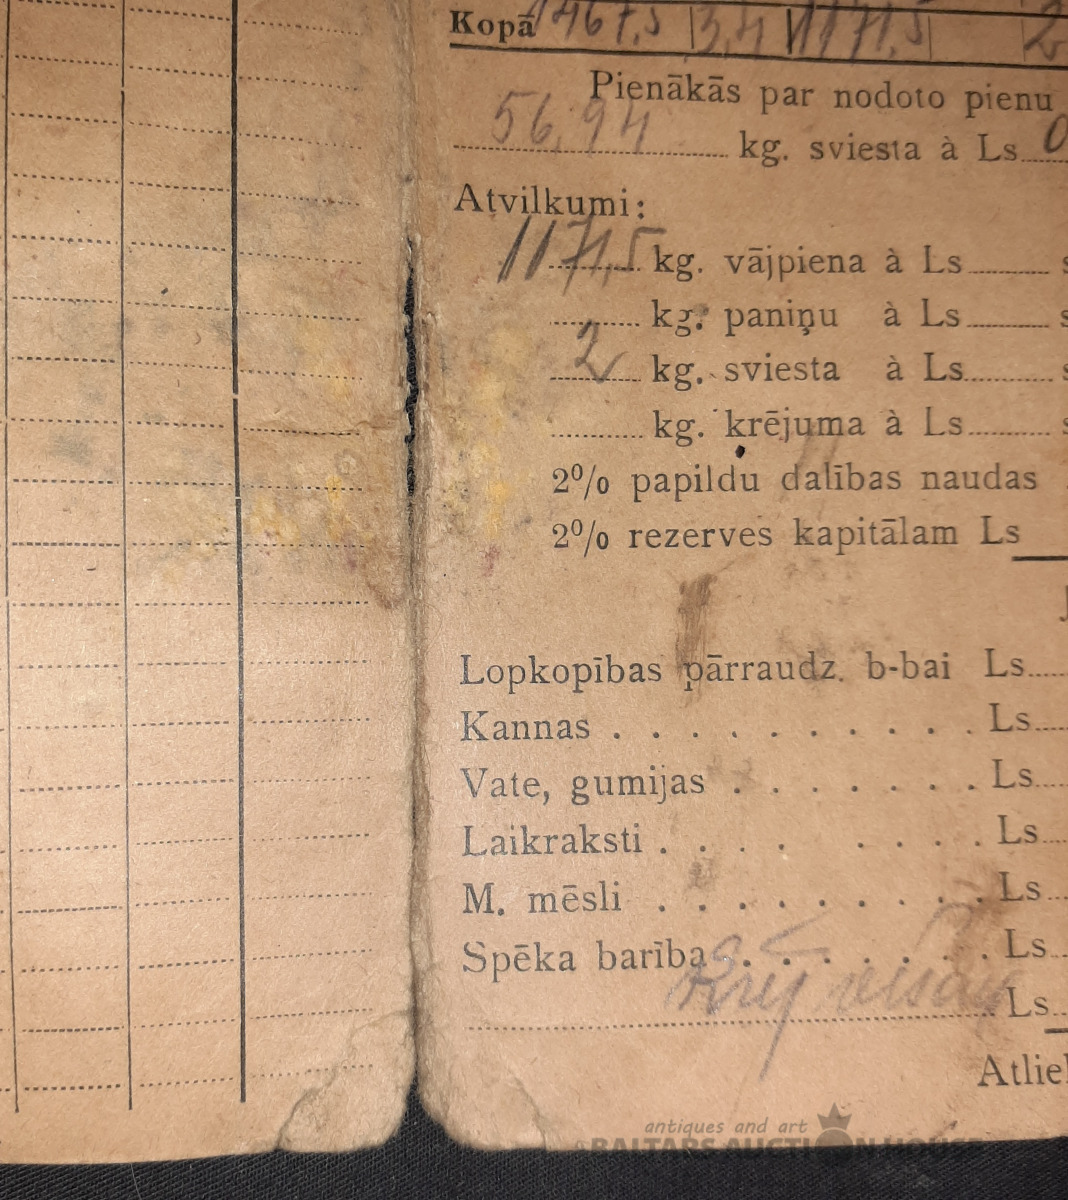 Kopā 1467,5 3,4 1171,5 2
Pienākās par nodoto pienu
56,94 kg. sviesta à Ls 0
Atvilkumi:
1171,5 kg. vājpiena à Ls s
kg. paniņu à Ls s
2 kg. sviesta à Ls s
kg. krējuma à Ls s
2% papildu dalības naudas
2% rezerves kapitālam Ls
Lopkopības pārraudz. b-bai Ls
Kannas Ls
Vate, gumijas Ls
Laikraksti Ls
M. mēsli Ls
Spēka barība Ls
Ls
Atliek
antiques and art
BALTARS AUCTION HOUSE